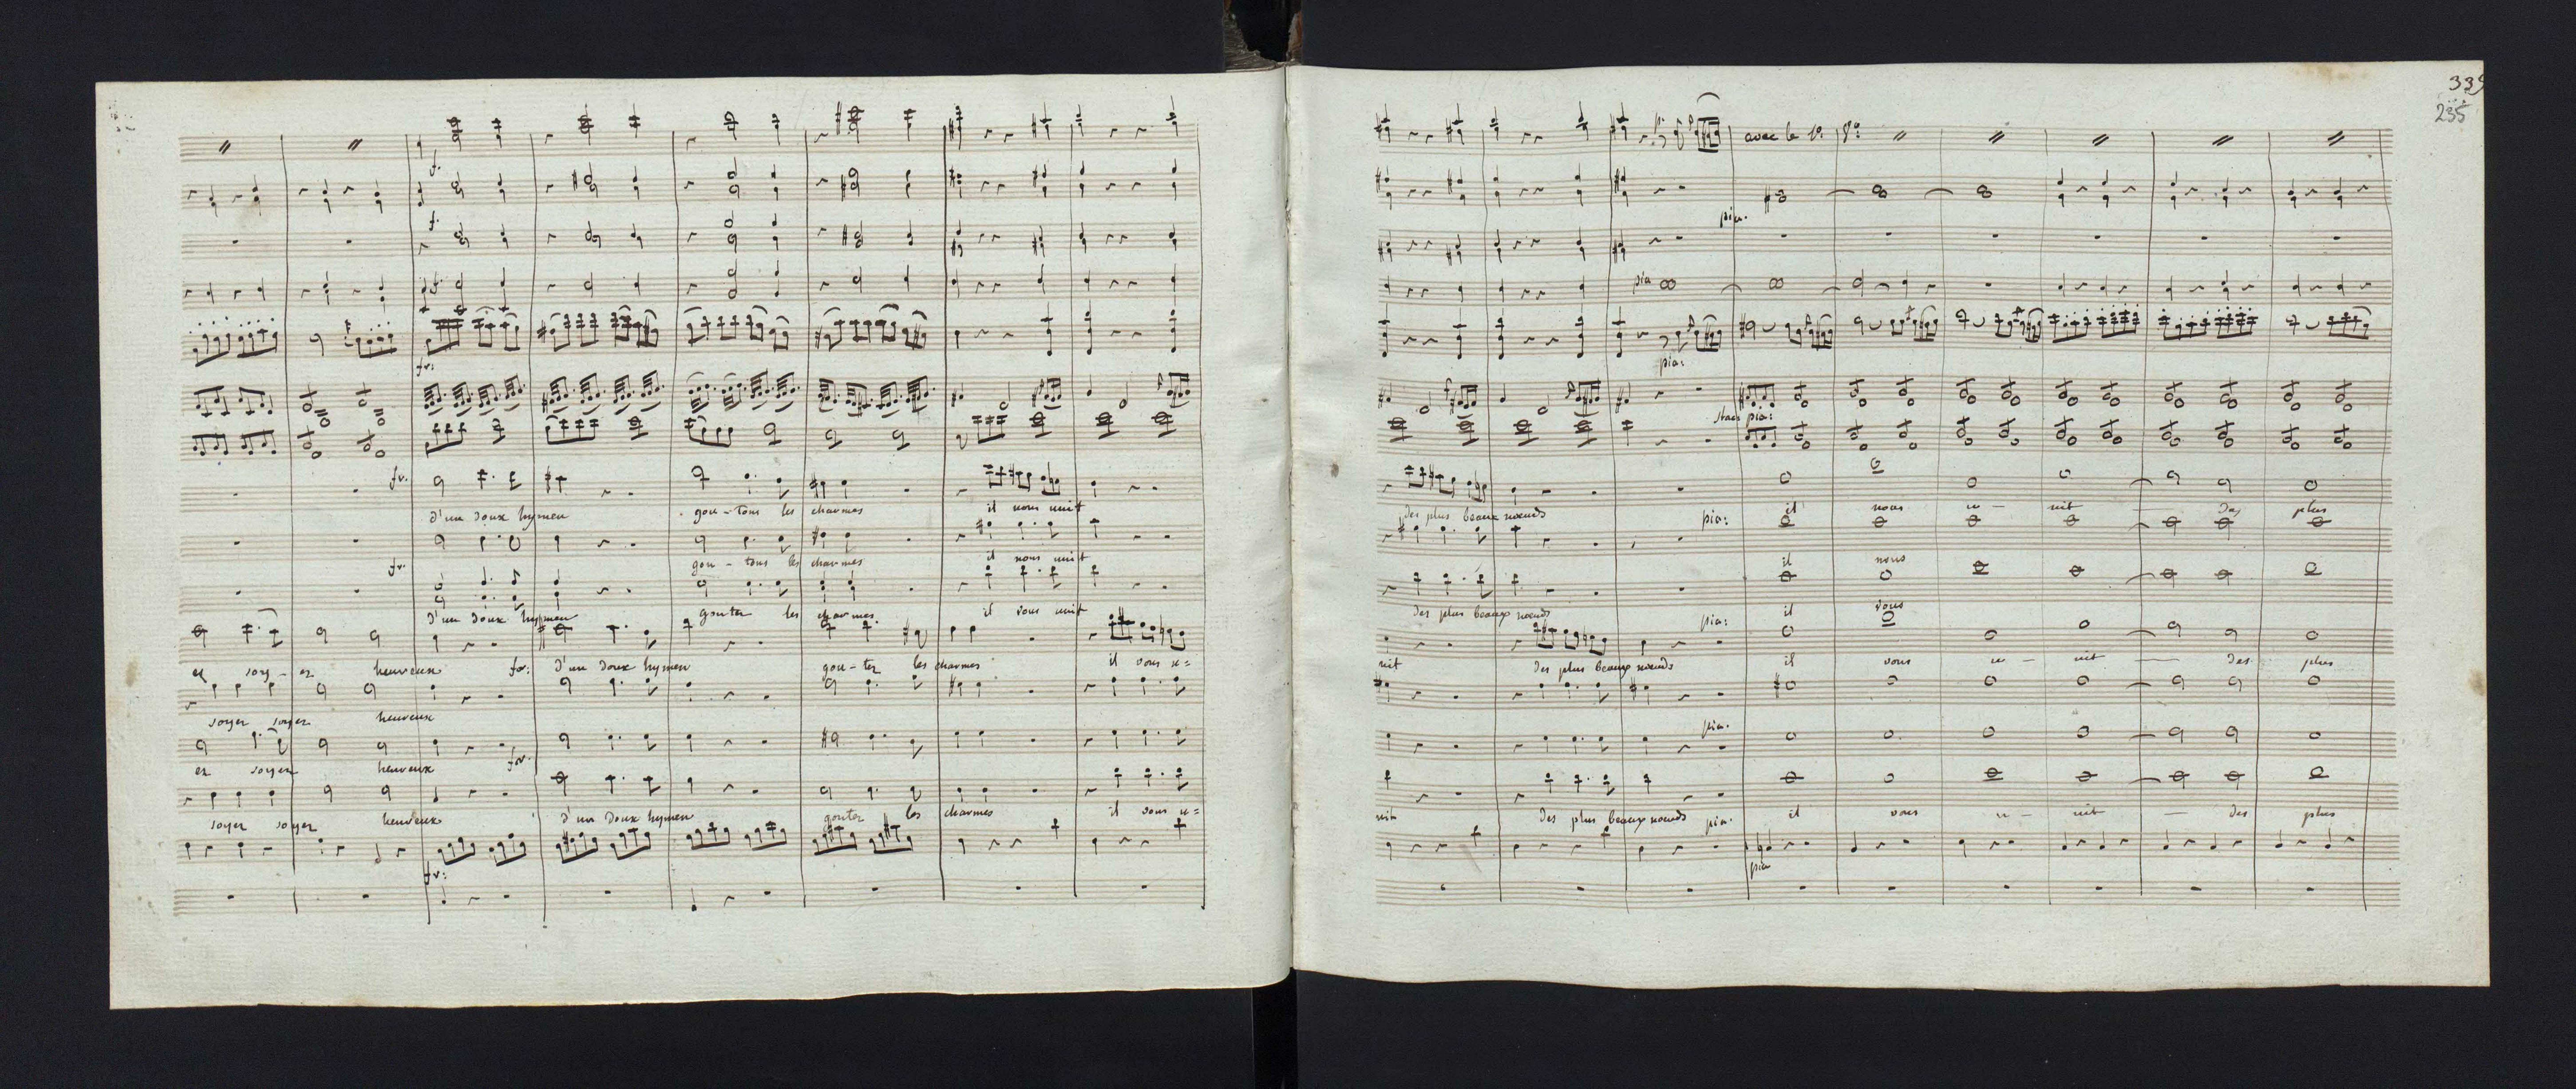 f.
f.
f.
fr:
fr.
d'un doux hymen gou-tons les charmes il nous unit
gou-tons les charmes il nous unit
fr.
d'un doux hymen gouter les charmes il vous unit
ez soy-ez heureux for: d'un doux hymen gou-ter les charmes il vous u=
soyez soyez heureux
ez soyez heureux for.
soyez soyez heureux d'un doux hymen gouter les charmes il vous u=
fr:
339
235
avec le 1º. Vº
pia.
pia
pia:
stac pia:
des plus beaux nœuds il nous u- nit des plus
pia:
il nous
des plus beaux nœuds il vous
pia:
nit des plus beaux nœuds il vous u- nit des plus
pia.
nit des plus beaux nœuds pia. il vous u- nit des plus
pia